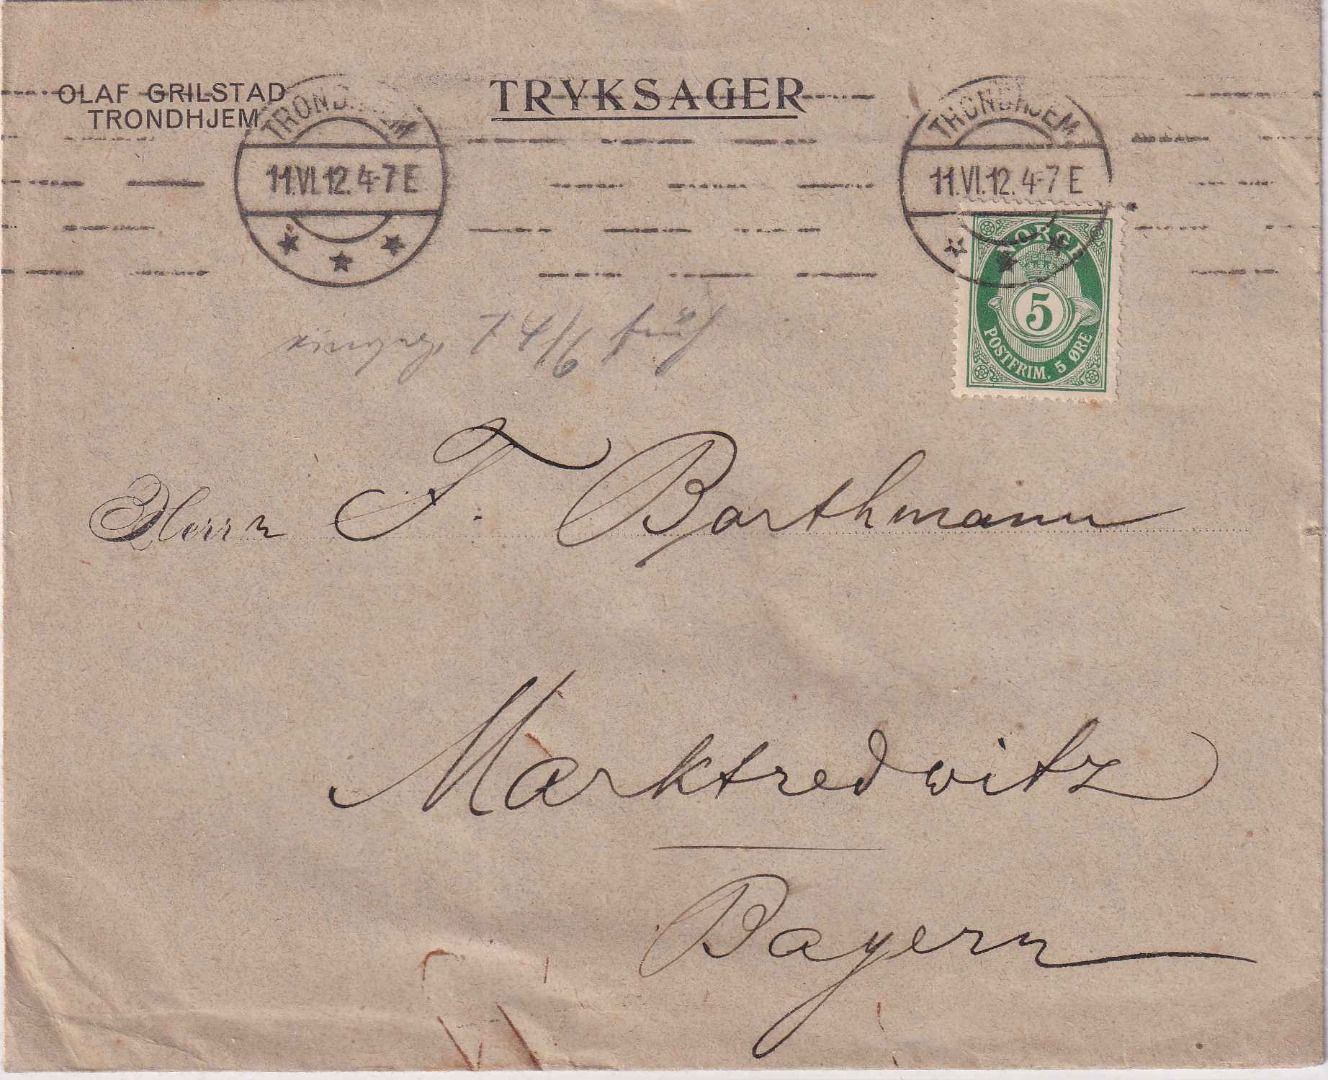 OLAF GRILSTAD
TRONDHJEM
TRYKSAGER
TRONDHJEM
11.VI.12.4-7E
TRONDHJEM
11.VI.12.4-7E
NORGE
5
POSTFRIM. 5 ØRE
eingeg. 14/6 früh
Herrn F. Barthmann
Marktredwitz
Bayern